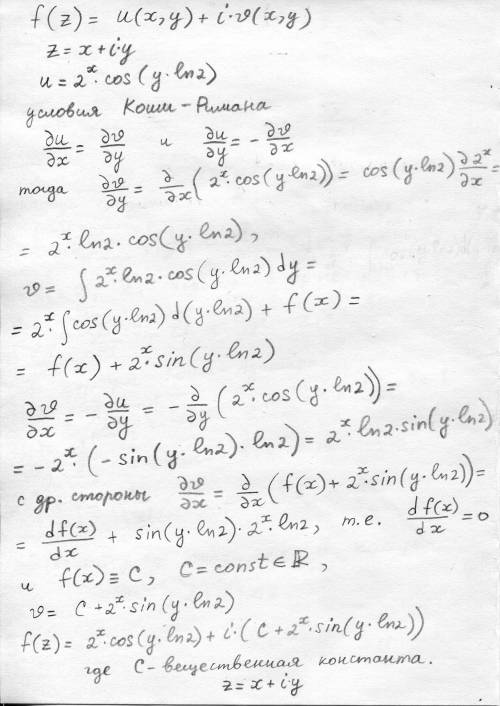 f(z) = u(x,y) + i·ϑ(x,y)
z = x+i·y
u = 2^x·cos(y·ln2)
условия Коши-Римана
∂u/∂x = ∂ϑ/∂y и ∂u/∂y = -∂ϑ/∂x
тогда ∂ϑ/∂y = ∂/∂x(2^x·cos(y·ln2)) = cos(y·ln2) ∂2^x/∂x =
= 2^x·ln2·cos(y·ln2),
ϑ = ∫ 2^x·ln2·cos(y·ln2) dy =
= 2^x·∫cos(y·ln2) d(y·ln2) + f(x) =
= f(x) + 2^x·sin(y·ln2)
∂ϑ/∂x = -∂u/∂y = -∂/∂y(2^x·cos(y·ln2)) =
= -2^x·(-sin(y·ln2)·ln2) = 2^x·ln2·sin(y·ln2)
с др. стороны ∂ϑ/∂x = ∂/∂x(f(x)+2^x·sin(y·ln2)) =
= df(x)/dx + sin(y·ln2)·2^x·ln2, т.е. df(x)/dx = 0
и f(x) ≡ C, C = const ∈ ℝ,
ϑ = C + 2^x·sin(y·ln2)
f(z) = 2^x·cos(y·ln2) + i·(C + 2^x·sin(y·ln2))
где C - вещественная константа.
z = x+i·y